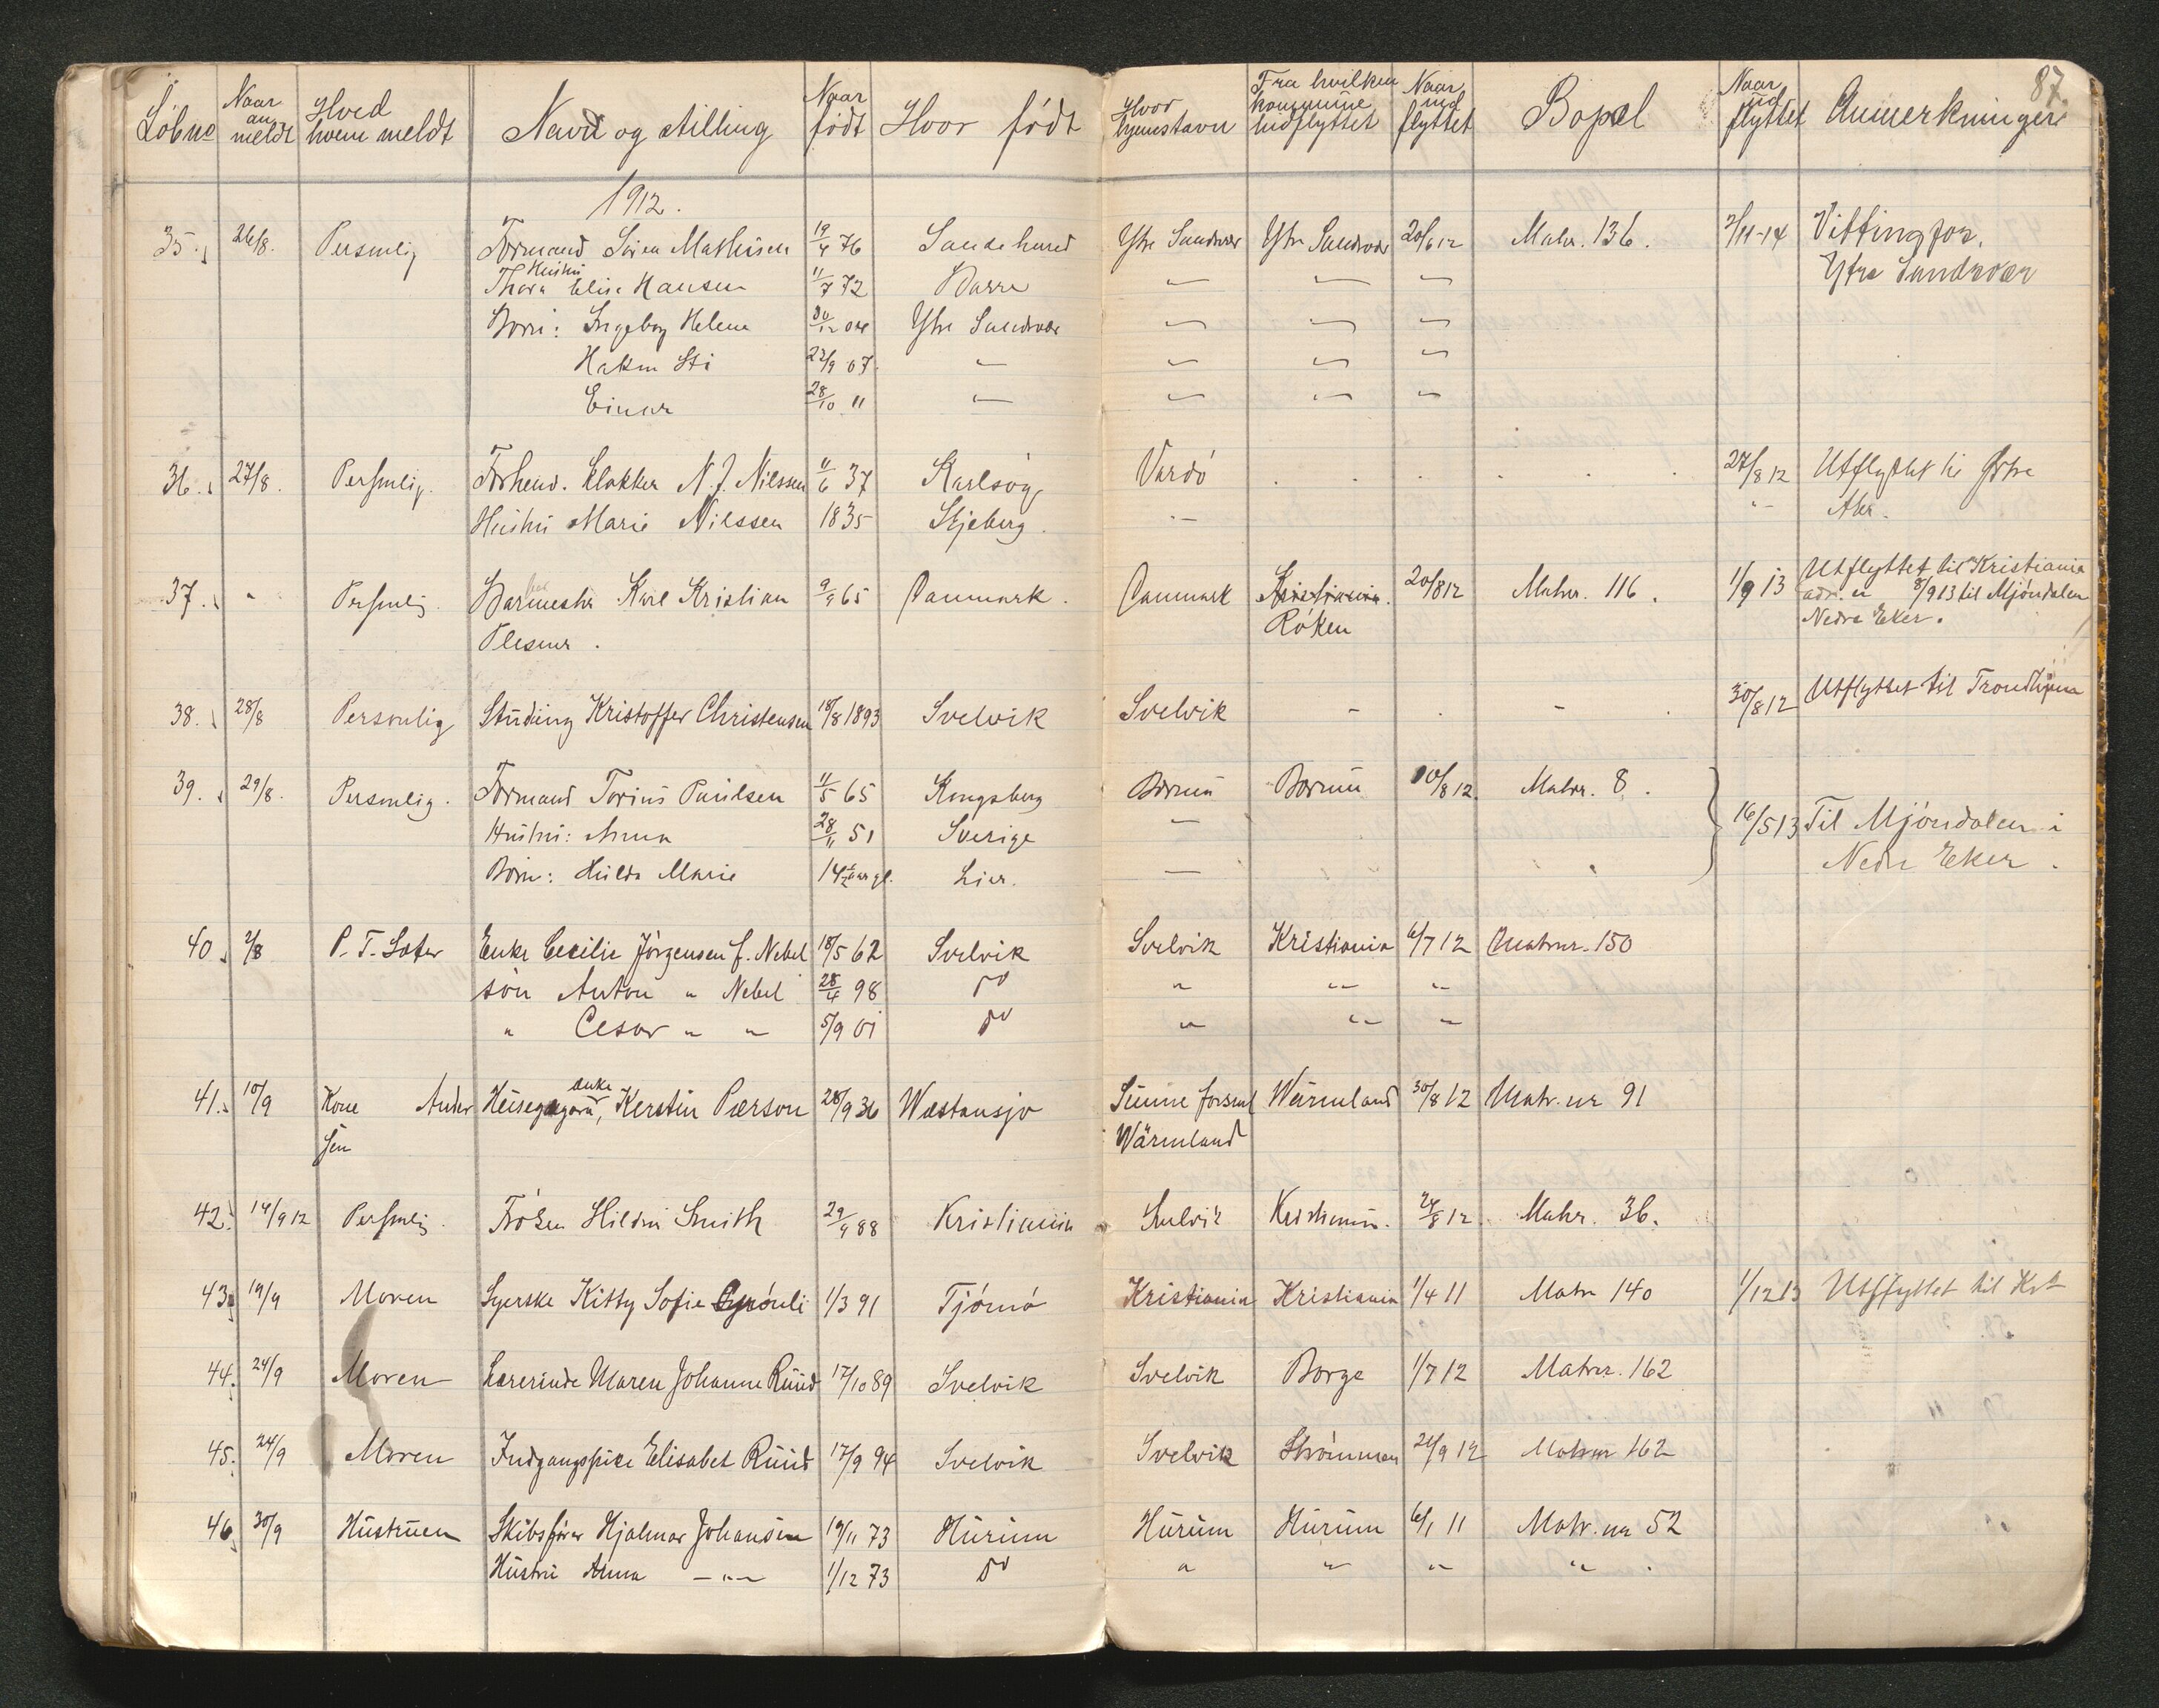 87.
Löbno Naar anmeldt Hved hvem meldt Navn og stilling Naar født Hvor født Hvor hjemstavn Fra hvilken kommune indflyttet Naar indflyttet Bopæl Naar udflyttet Anmerkninger
1912.
35. 26/8. Personlig Formand Sören Mathisen 19/4 76 Sandehered Ytre Sandsvær Ytre Sandsvær 20/6 12 Matr. 136. 2/11-14 Vittingfos,
Hustru
Thora Elise Hansen 11/7 72 Borre — — — Ytre Sandsvær
Börn: Ingeborg Helene 30/12 04 Ytre Sandsvær — — —
Hakon 22/9 07 — — — —
Einar 28/10 11 — — — —
36. 27/8. Personlig. Forhenv. klokker N. J. Nilssen 11/6 37 Karlsöy Vardö 27/8 12 Utflyttet til Östre
Hustru Marie Nilssen 1835 Skjeberg. — " Aker.
37. " Personlig Karl Kristian 9/9 65 Danmark. Danmark Kristiania. 20/8 12 Matr. 116. 1/9 13 Utflyttet til Kristiania
Plesner. Röken 8/9 13 til Mjöndalen
Nedre Eker.
38. 28/8 Personlig Studiing Kristoffer Christensen 18/8 1893 Svelvik Svelvik - . - . 30/8 12 Utflyttet til Trondhjem
39. 29/8. Personlig. Formand Torius Paulsen 11/5 65 Kongsberg Borum Borum 10/8 12. Matr. 8.
Hustru: Anna 28/11 51 Sverige — 16/5 13 Til Mjöndalen i
Börn: Hulda Marie 14 1/2 aar gl. Lier. — Nedre Eker.
40. 2/8 P. T. Sæter Enke Cecilie Jörgensen f. Nebel 18/5 62 Svelvik Svelvik Kristiania 6/7 12 Matrnr. 150
sön Anton " Nebel 28/4 98 do " " "
" Cesar " " 5/9 01 do " " "
41. 10/9 Kone Ander enke Kerstin Pærson 28/9 36 Wæstansjö Sunne forsml Wärmland 30/8 12 Matr. nr 91
sen Wärmland
42. 14/9 12 Personlig Fröken Smith 29/9 88 Kristiania Svelvik Kristiania. 24/8 12 Matr. 36.
43. 19/9 Moren Syerske Kitty Sofie 1/3 91 Tjömö Kristiania Kristiania 1/4 11 Matr 140 1/12 13 Utflyttet til Krt
44. 24/9 Moren Lærerinde Maren Johanne Ruud 17/10 89 Svelvik Svelvik Borge 1/7 12 Matrr. 162
45. 24/9 Moren Indgangspike Elisabet Ruud 17/9 94 Svelvik Svelvik Strömmen 21/9 12 Matr nr 162
46. 30/9 Hustruen Skibsförer Hjalmar Johansen 19/11 73 Hurum Hurum Hurum 6/1 11 Matr. nr 52
Hustru Anna — " — 1/12 73 do " " " "